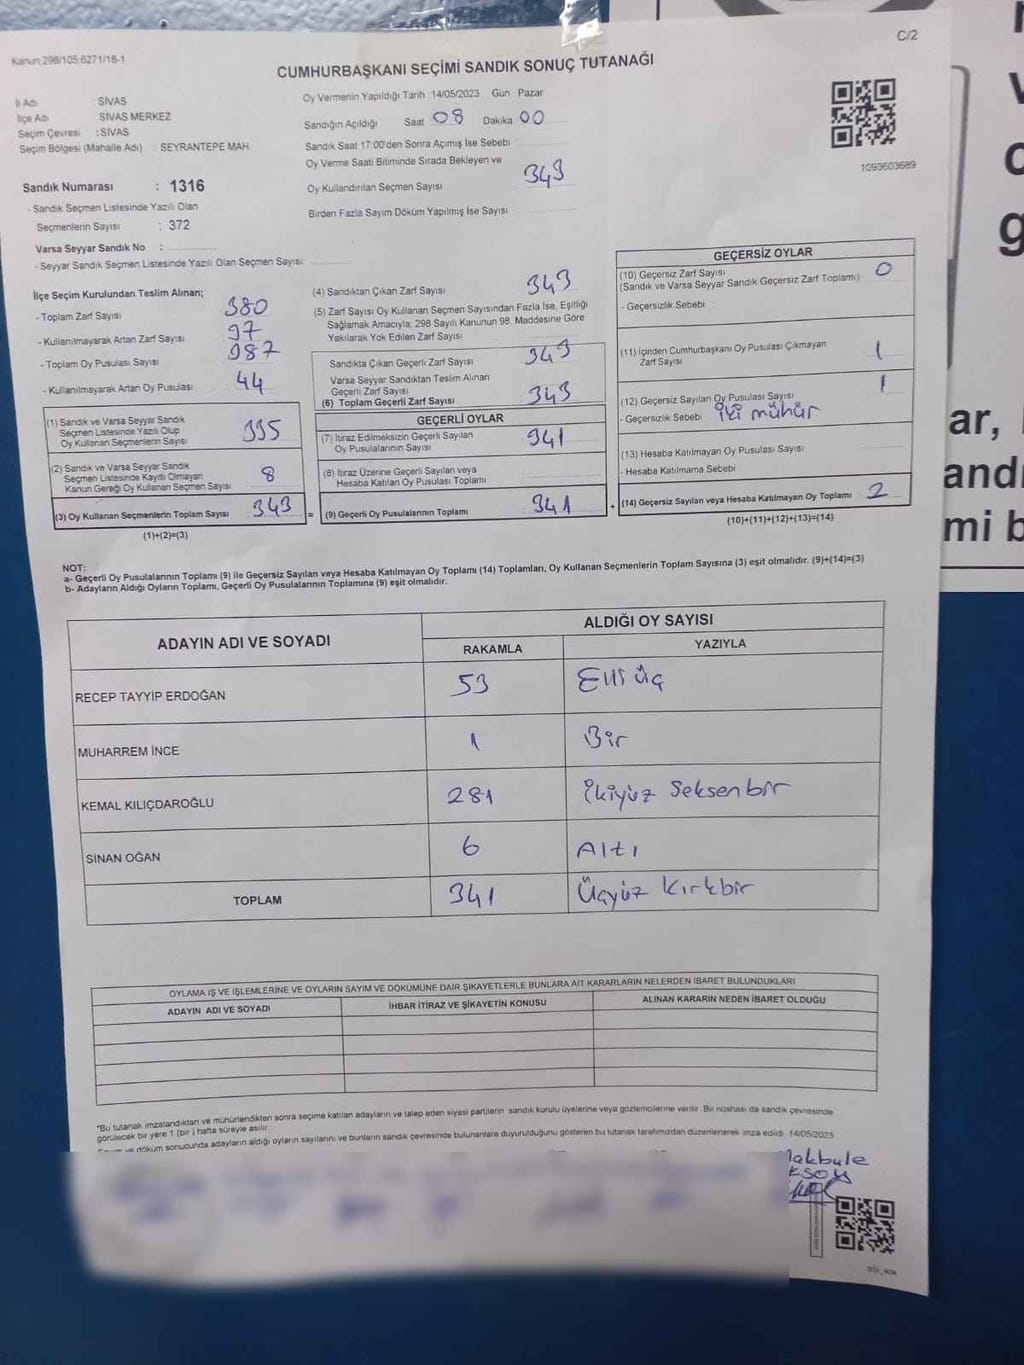 C/2
Kanun 298/105;6271/18-1
CUMHURBAŞKANI SEÇİMİ SANDIK SONUÇ TUTANAĞI
İl Adı : SİVAS
İlçe Adı : SİVAS MERKEZ
Seçim Çevresi : SİVAS
Seçim Bölgesi (Mahalle Adı) : SEYRANTEPE MAH.
Sandık Numarası : 1316
- Sandık Seçmen Listesinde Yazılı Olan
Seçmenlerin Sayısı : 372
Varsa Seyyar Sandık No :
- Seyyar Sandık Seçmen Listesinde Yazılı Olan Seçmen Sayısı:
Oy Vermenin Yapıldığı Tarih : 14/05/2023 Gün Pazar
Sandığın Açıldığı Saat 08 Dakika 00
Sandık Saat 17:00'den Sonra Açımış İse Sebebi
Oy Verme Saati Bitiminde Sırada Bekleyen ve
Oy Kullandırılan Seçmen Sayısı 343
Birden Fazla Sayım Döküm Yapılmış İse Sayısı
1093603689
İlçe Seçim Kurulundan Teslim Alınan;
- Toplam Zarf Sayısı 380
- Kullanılmayarak Artan Zarf Sayısı 97
- Toplam Oy Pusulası Sayısı 387
- Kullanılmayarak Artan Oy Pusulası 44
(1) Sandık ve Varsa Seyyar Sandık
Seçmen Listesinde Yazılı Olup
Oy Kullanan Seçmenlerin Sayısı 335
(2) Sandık ve Varsa Seyyar Sandık
Seçmen Listesinde Kayıtlı Olmayan
Kanun Gereği Oy Kullanan Seçmen Sayısı 8
(3) Oy Kullanan Seçmenlerin Toplam Sayısı 343
(1)+(2)=(3)
(4) Sandıktan Çıkan Zarf Sayısı 343
(5) Zarf Sayısı Oy Kullanan Seçmen Sayısından Fazla İse, Eşitliği
Sağlamak Amacıyla; 298 Sayılı Kanunun 98. Maddesine Göre
Yakılarak Yok Edilen Zarf Sayısı
Sandıkta Çıkan Geçerli Zarf Sayısı 343
Varsa Seyyar Sandıktan Teslim Alınan
Geçerli Zarf Sayısı
(6) Toplam Geçerli Zarf Sayısı 343
GEÇERLİ OYLAR
(7) İtiraz Edilmeksizin Geçerli Sayılan
Oy Pusulalarının Sayısı 341
(8) İtiraz Üzerine Geçerli Sayılan veya
Hesaba Katılan Oy Pusulası Toplamı
= (9) Geçerli Oy Pusulalarının Toplamı 341
GEÇERSİZ OYLAR
(10) Geçersiz Zarf Sayısı 0
(Sandık ve Varsa Seyyar Sandık Geçersiz Zarf Toplamı)
- Geçersizlik Sebebi :
(11) İçinden Cumhurbaşkanı Oy Pusulası Çıkmayan
Zarf Sayısı 1
(12) Geçersiz Sayılan Oy Pusulası Sayısı 1
- Geçersizlik Sebebi : İki mühür
(13) Hesaba Katılmayan Oy Pusulası Sayısı
- Hesaba Katılmama Sebebi :
+ (14) Geçersiz Sayılan veya Hesaba Katılmayan Oy Toplamı 2
(10)+(11)+(12)+(13)=(14)
NOT:
a- Geçerli Oy Pusulalarının Toplamı (9) ile Geçersiz Sayılan veya Hesaba Katılmayan Oy Toplamı (14) Toplamları, Oy Kullanan Seçmenlerin Toplam Sayısına (3) eşit olmalıdır. (9)+(14)=(3)
b- Adayların Aldığı Oyların Toplamı, Geçerli Oy Pusulalarının Toplamına (9) eşit olmalıdır.
ADAYIN ADI VE SOYADI
ALDIĞI OY SAYISI
RAKAMLA YAZIYLA
RECEP TAYYİP ERDOĞAN 53 Elli üç
MUHARREM İNCE 1 Bir
KEMAL KILIÇDAROĞLU 281 İkiyüz Seksenbir
SİNAN OĞAN 6 Altı
TOPLAM 341 Üçyüz Kırkbir
OYLAMA İŞ VE İŞLEMLERİNE VE OYLARIN SAYIM VE DÖKÜMÜNE DAİR ŞİKAYETLERLE BUNLARA AİT KARARLARIN NELERDEN İBARET BULUNDUKLARI
ADAYIN ADI VE SOYADI İHBAR İTİRAZ VE ŞİKAYETİN KONUSU ALINAN KARARIN NEDEN İBARET OLDUĞU
*Bu tutanak imzalandıktan ve mühürlendikten sonra seçime katılan adayların ve talep eden siyasi partilerin sandık kurulu üyelerine veya gözlemcilerine verilir. Bir nüshası da sandık çevresinde
görülecek bir yere 1 (bir) hafta süreyle asılır.
ve döküm sonucunda adayların aldığı oyların sayılarını ve bunların sandık çevresinde bulunanlara duyurulduğunu gösteren bu tutanak tarafımızdan düzenlenerek imza edildi. 14/05/2023
Makbule
KSOY
ar,
andı
mi b